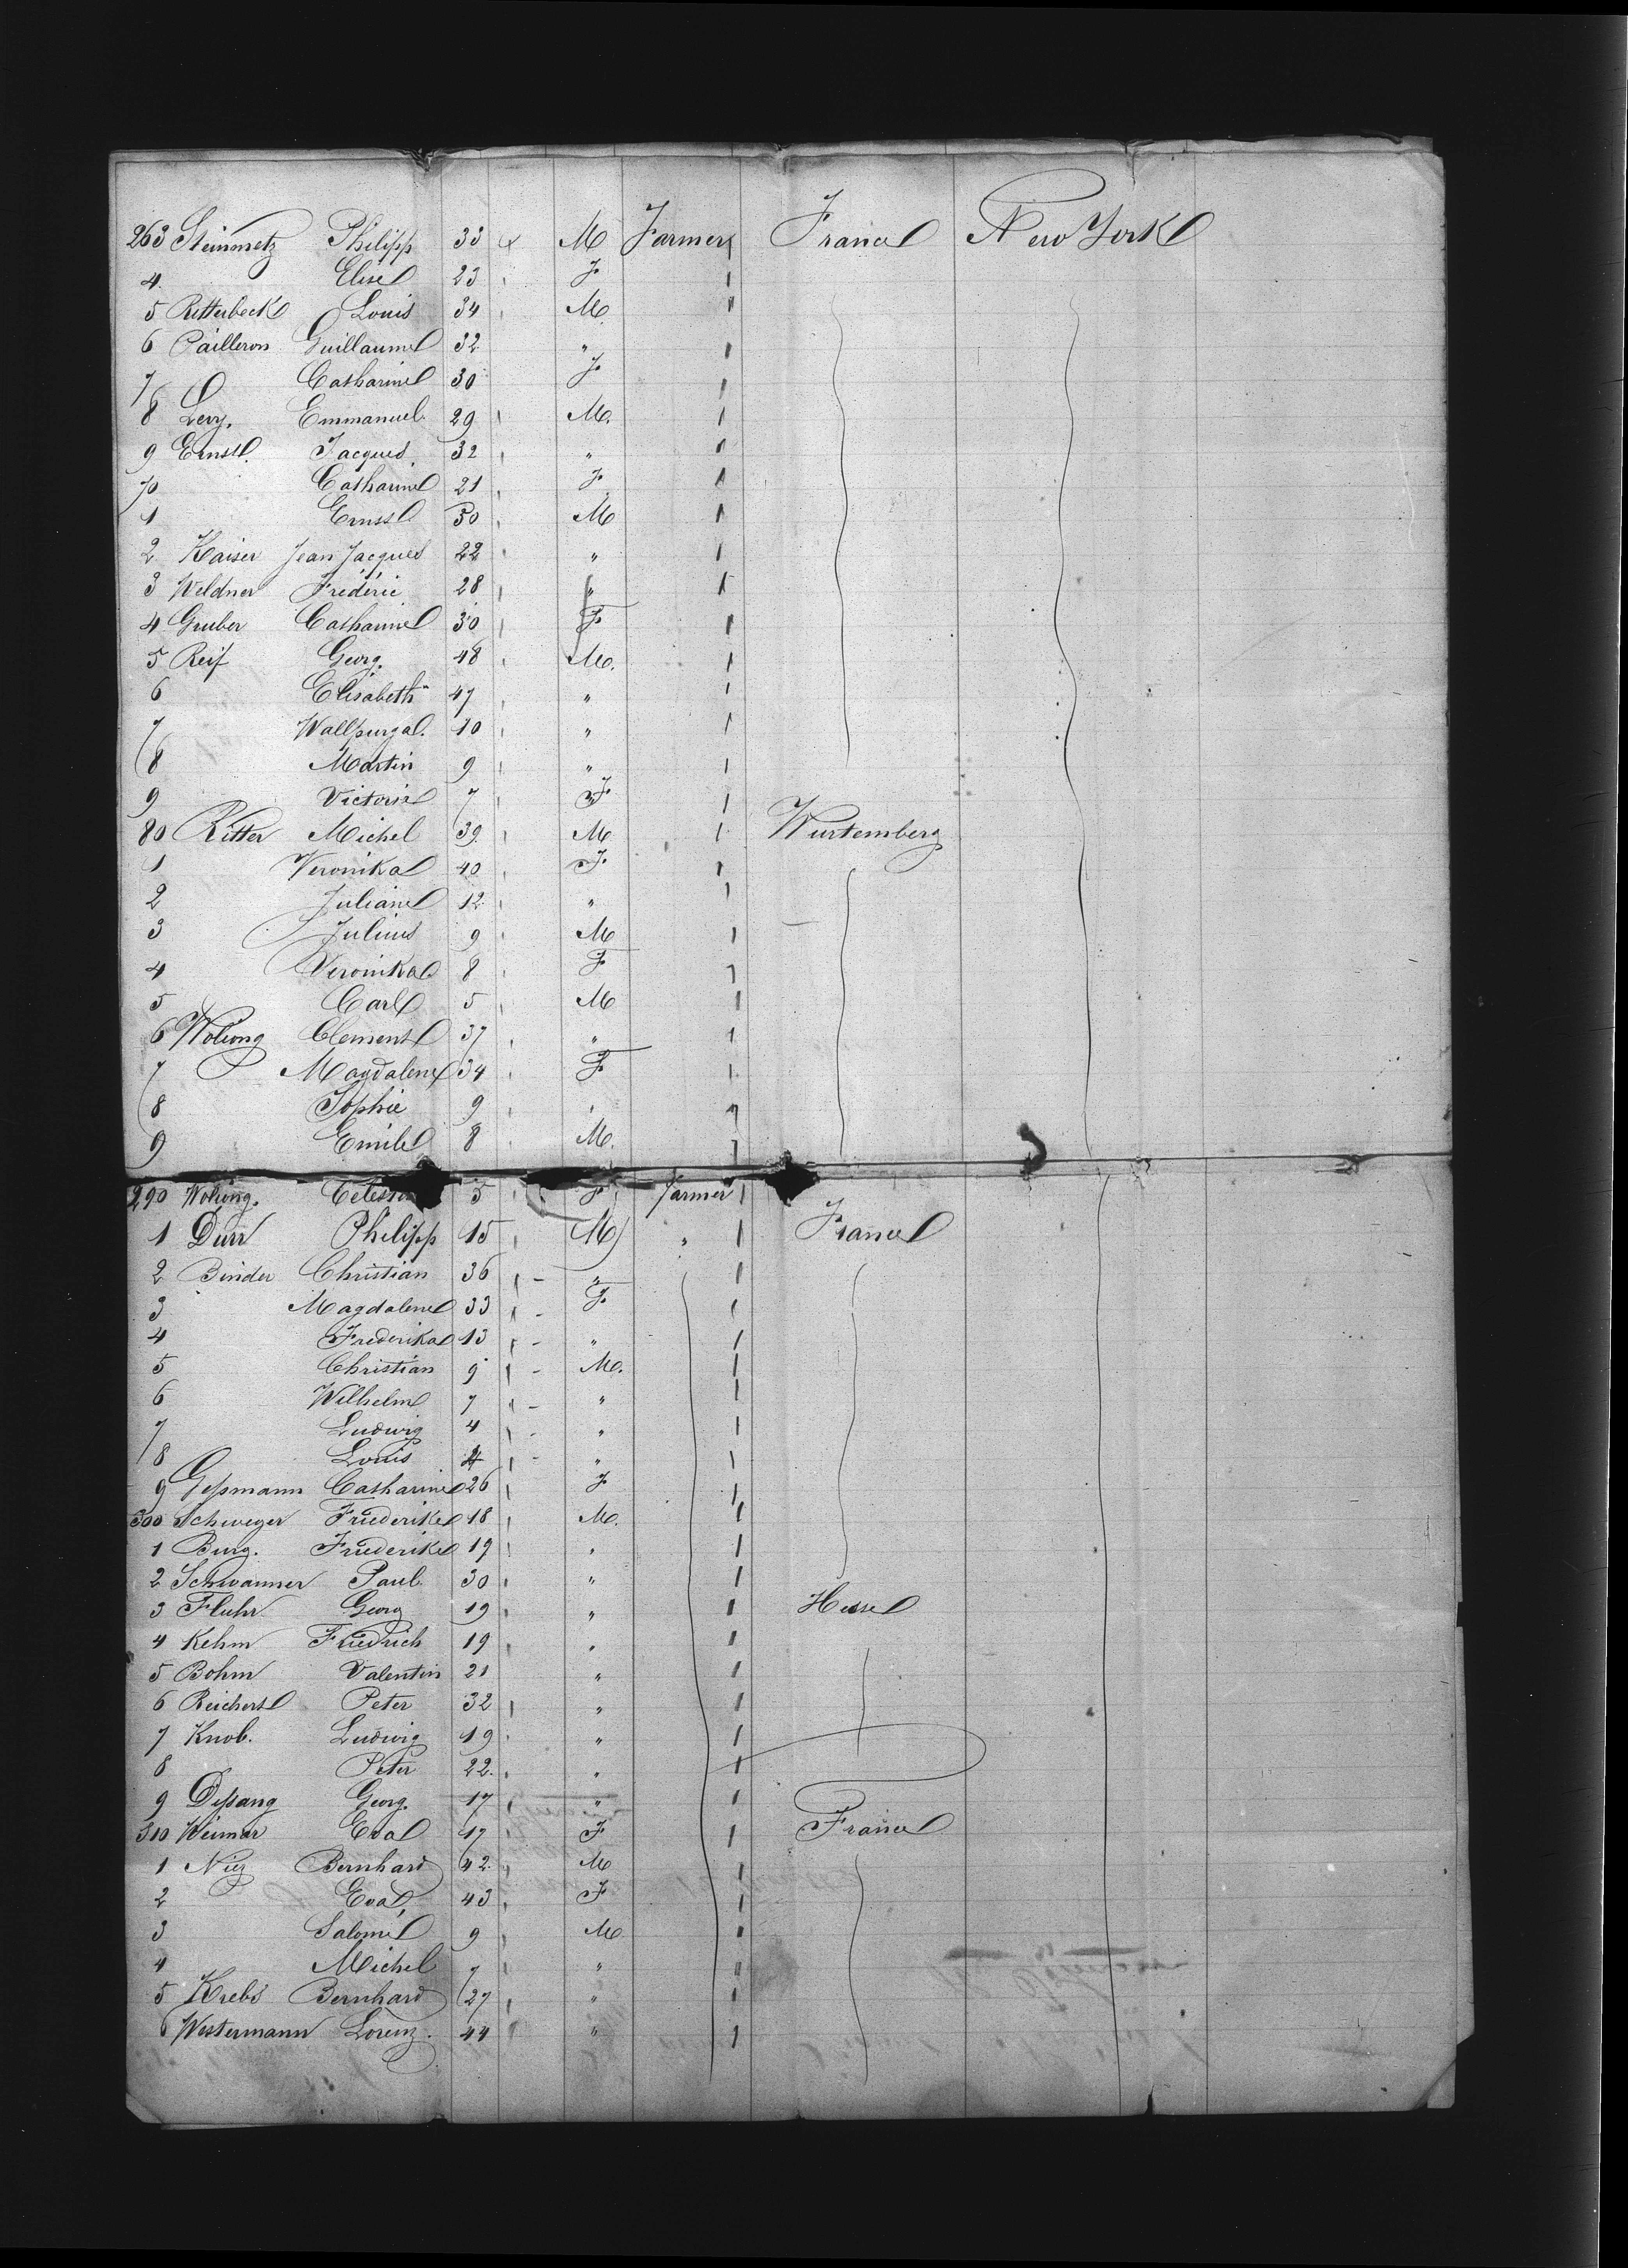 263 Steinmetz Philipp 33 M Farmer France New York
4 Elise 23 F
5 Ritterbeck Louis 34 M
6 Pailleron Guillaume 32 "
7 Catharine 30 F
8 Levy. Emmanuel. 29 M.
9 Ernst. Jacques 32 "
70 Catharine 21 F.
1 Ernst 30 M
2 Kaiser Jean Jacques 22 "
3 Weldner Fréderic 28 "
4 Gruber Catharine 30 F
5 Reif Georg. 48 M.
6 Elisabeth 47 "
7 Wallpurga. 10 "
8 Martin 9 "
9 Victorie 7 F
80 Ritter Michel 39. M Wurtemberg
1 Veronika 40 F
2 Juliane 12 "
3 Julius 9 M
4 Veronika 8 F
5 Carl 5 M
6 Clement 37 "
7 Magdalene 34 F
8 Sophie 9 "
9 Emile 8 M.
290 5 F Farmer
1 Durr Philipp 15 M " France
2 Binder Christian 36 "
3 Magdalene 33 F
4 Frederika 13 "
5 Christian 9 M.
6 Wilhelm 7 "
7 Ludwig 4 "
8 Louis "
9 Geßmann Catharine 26 F
300 Schweger Friederike 18 M.
1 Burg. Friederike 19 "
2 Schwanner Paul. 30 "
3 Fluhr Georg 19 " Hesse
4 Kehm Friedrich 19 "
5 Bohm Valentin 21 "
6 Reichert Peter 32 "
7 Knob. Ludwig 19 "
8 Peter 22. "
9 Deßang Georg. 17 "
310 Weimar Eva 17 F France
1 Niez Bernhard 42. M
2 Eva 43 F
3 Salomé 9 M
4 Michel 7 "
5 Krebs Bernhard 27 "
6 Westermann Lorenz. 44 "